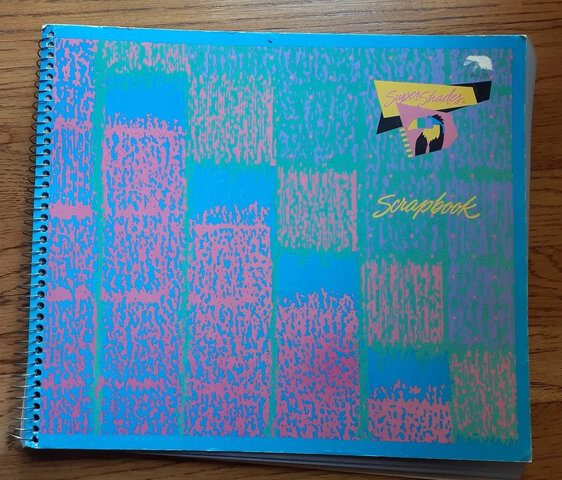 Super Shades
Scrapbook